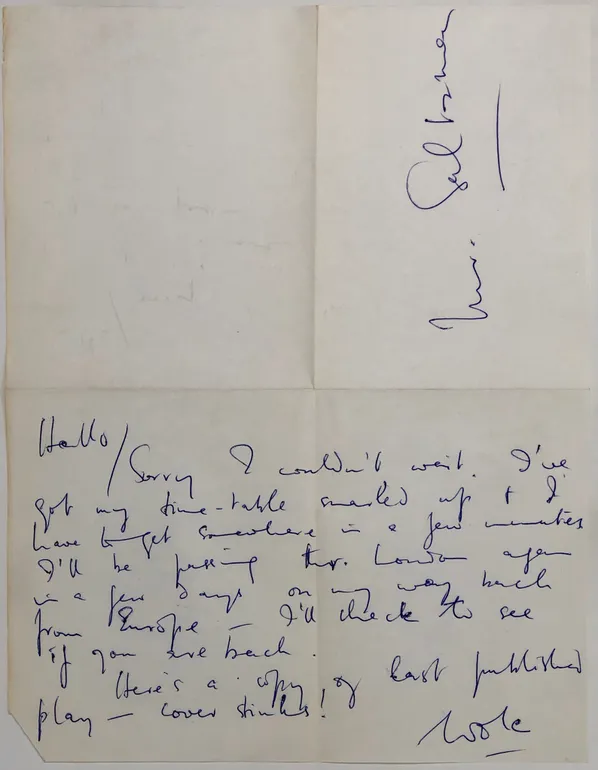 Mr. Salkman
Hallo/
Sorry I couldn't wait. I've
got my time-table snarled up & I
have to get somewhere in a few minutes
I'll be passing thr. London again
in a few days on my way back
from Europe — I'll check to see
if you are back.
Here's a copy of last published
play — cover stinks!
Wole